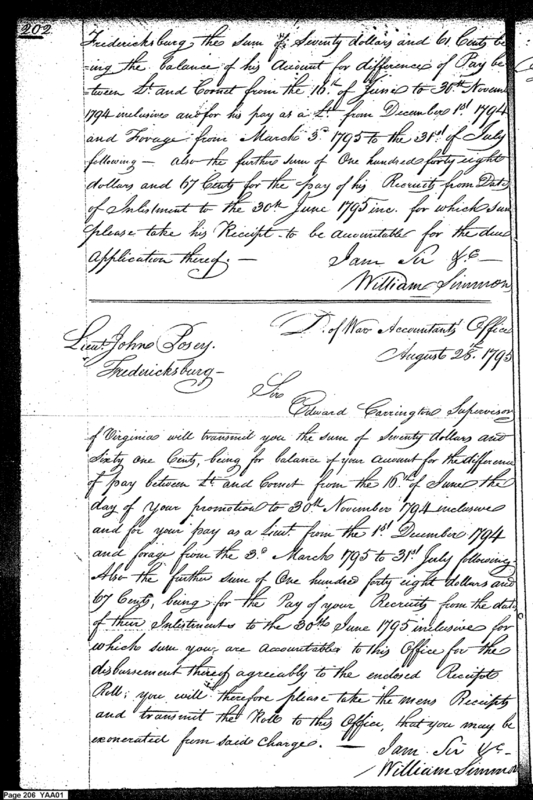 202
Fredericksburg the sum of Seventy dollars and 61 Cents be
-ing the balance of his Account for difference of Pay be
tween Lt. and Cornet from the 16th. of June to 30th Novem
1794 inclusive and for his pay as a Lt. from December 1st. 1794
and Forage from March 3d. 1795 to the 31st. of July
following — also the further sum of One hundred forty eight
dollars and 67 Cents for the pay of his Recruits from Date
of Inlistment to the 30th June 1795 inc. for which sum
please take his Receipt to be accountable for the due
Application thereof. —
I am Sir &c —
William Simmons
D. of War Accountants Office
August 28th. 1795
Lieut. John Posey.
Fredericksburg —
Sir
Edward Carrington Supervisor
of Virginia will transmit you the sum of Seventy dollars and
Sixty one Cents, being for balance of your account for the difference
of pay between Lt. and Cornet from the 16th of June the
day of your promotion to 30th November 1794 inclusive
and for your pay as a Lieut. from the 1st December 1794
and forage from the 3d. March 1795 to 31st July following.
Also the further sum of One hundred forty eight dollars and
67 Cents, being for the Pay of your Recruits from the date
of their Inlistments to the 30th June 1795 inclusive for
which sum you are accountable to this Office for the
disbursement thereof agreeably to the enclosed Receipt
Roll; you will therefore please take the mens Receipts
and transmit the Roll to this Office, that you may be
exonerated from said Charge. —
I am Sir &c —
William Simmon
Page 206 YAA01